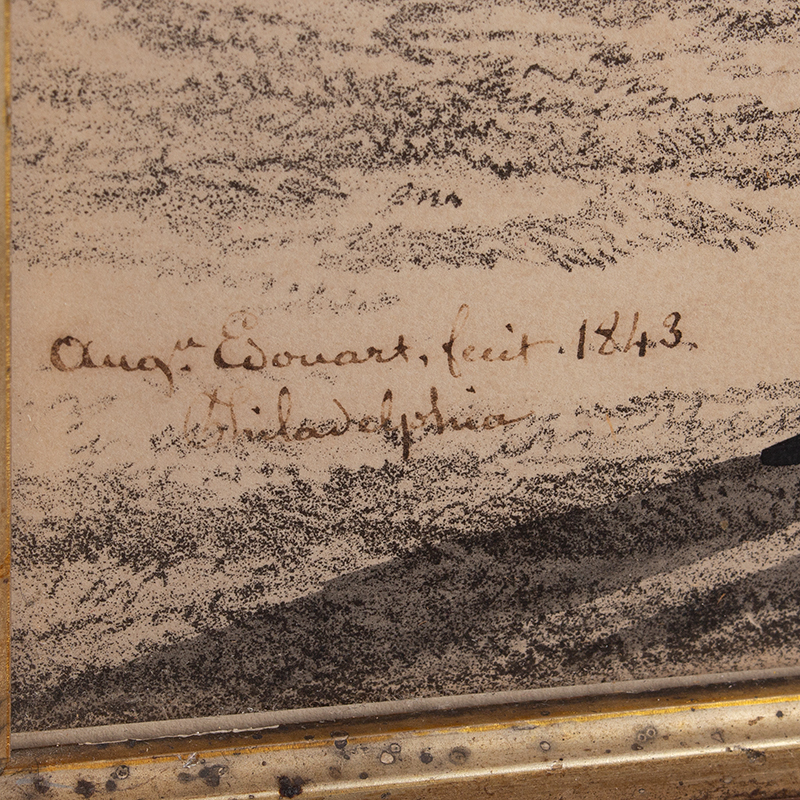 Augⁿ. Edouart, fecit. 1843.
Philadelphia